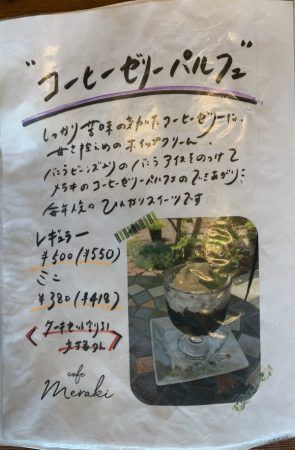 "コーヒーゼリーパルフェ"
しっかり苦味の効いたコーヒーゼリーに、
甘さ控えめのホイップクリーム、
バニラビーンズ入りのバニラアイスをのせて
メラキのコーヒーゼリーパルフェのできあがり♪
毎年人気のひんやりスイーツです
レギュラー
¥500(¥550)
ミニ
¥380(¥418)
ケーキセット
cafe
Meraki